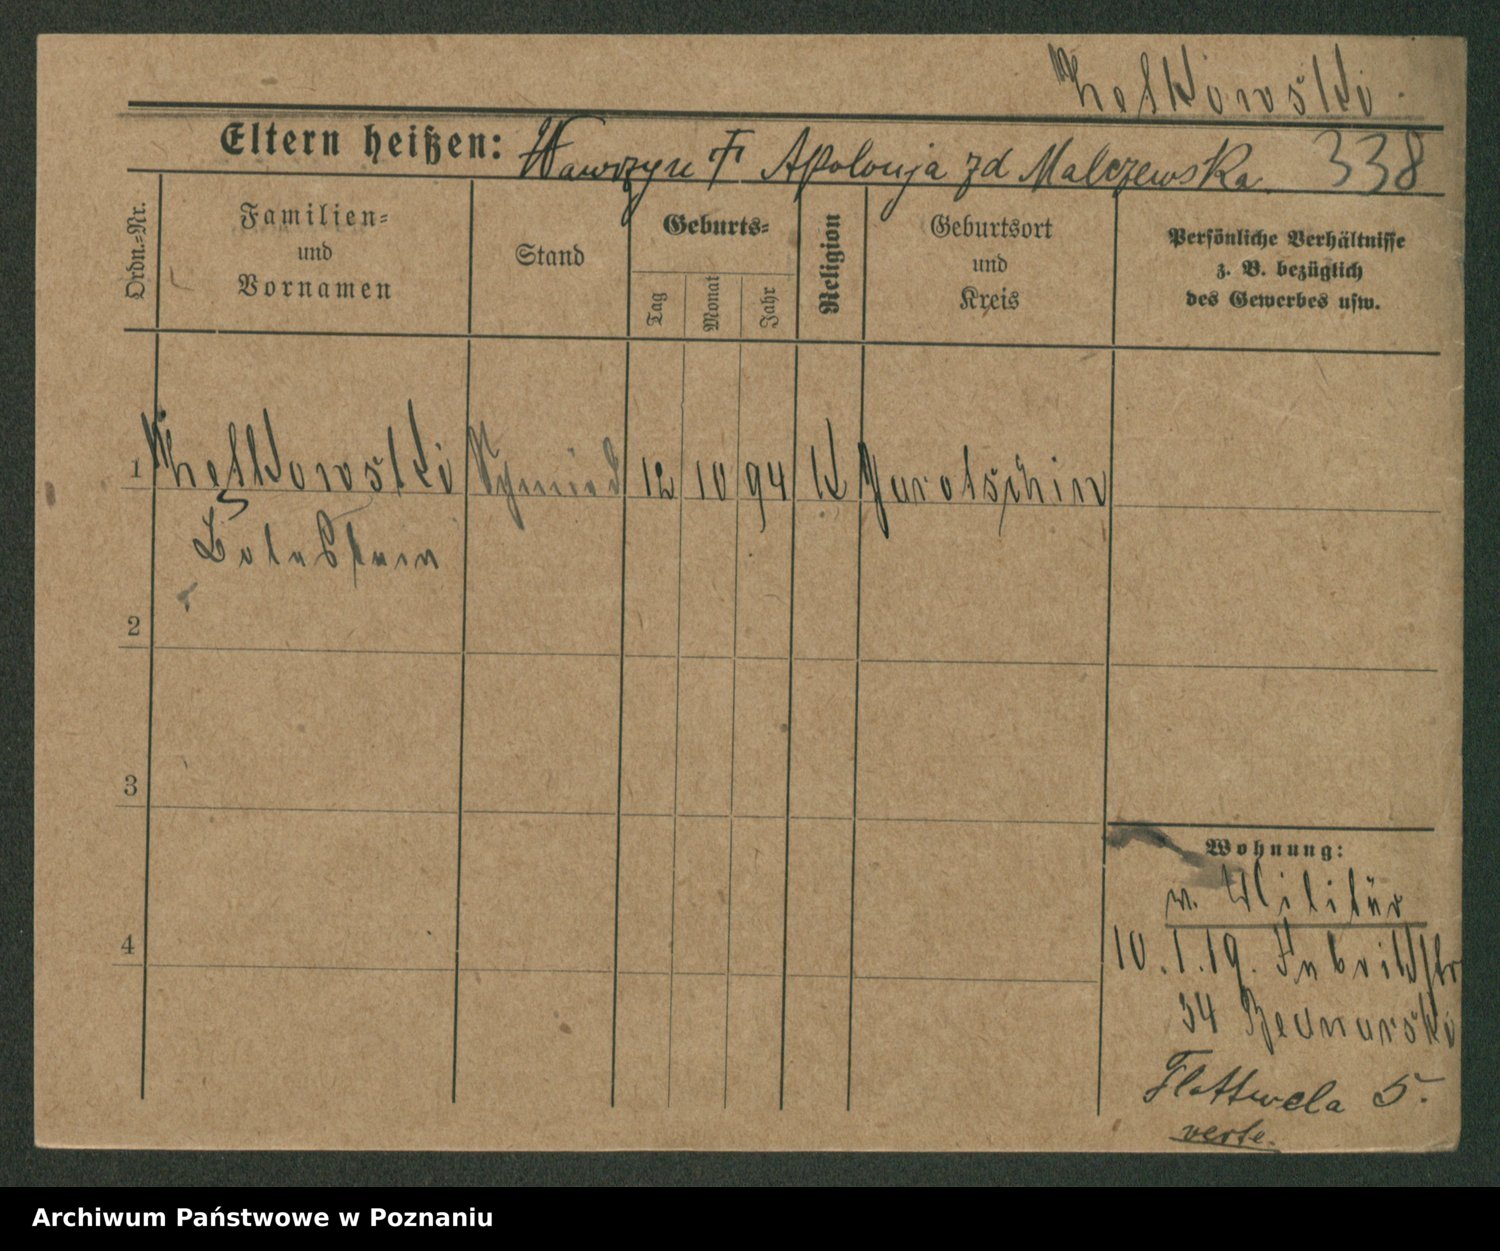 338
Eltern heißen: Wawrzyn † Apolonja zd Malczewska
Ordn.-Nr.
Familien-
und
Vornamen
Stand
Geburts-
Tag
Monat
Jahr
Religion
Geburtsort
und
Kreis
Persönliche Verhältnisse
z. B. bezüglich
des Gewerbes usw.
1 12 10 94 K Jarotschin
2
3
4
Wohnung:
v. Militär
10.1.19. Fabrikstr
34 Bednarski
Flottwela 5.
verte.
Archiwum Państwowe w Poznaniu